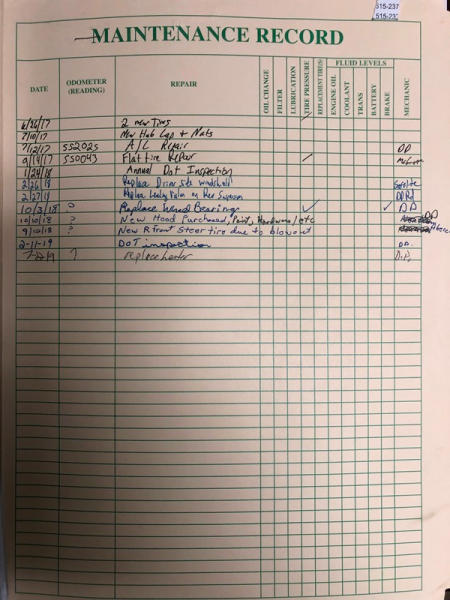 515-237
515-237
MAINTENANCE RECORD
DATE ODOMETER (READING) REPAIR OIL CHANGE FILTER LUBRICATION TIRE PRESSURE REPLACEMENT TIRES FLUID LEVELS ENGINE OIL COOLANT TRANS BATTERY BRAKE MECHANIC
6/26/17 2 new Tires
7/10/17 New Hub Cap + Nuts
7/12/17 552025 A/C Repair DD
9/14/17 550043 Flat tire Repair
1/24/18 Annual Dot Inspection
2/26/18 Replace Driver side windshield Safelite
2/27/18 Replace Leaky on Rear
10/3/18 0 Replace Wheel Bearings ✓ ✓ DD
10/10/18 ? New Hood Purchased, Paint, Hardware/etc DD
9/10/18 ? New R front Steer tire due to blowout
2-11-19 DOT inspection DD.
? replace heater